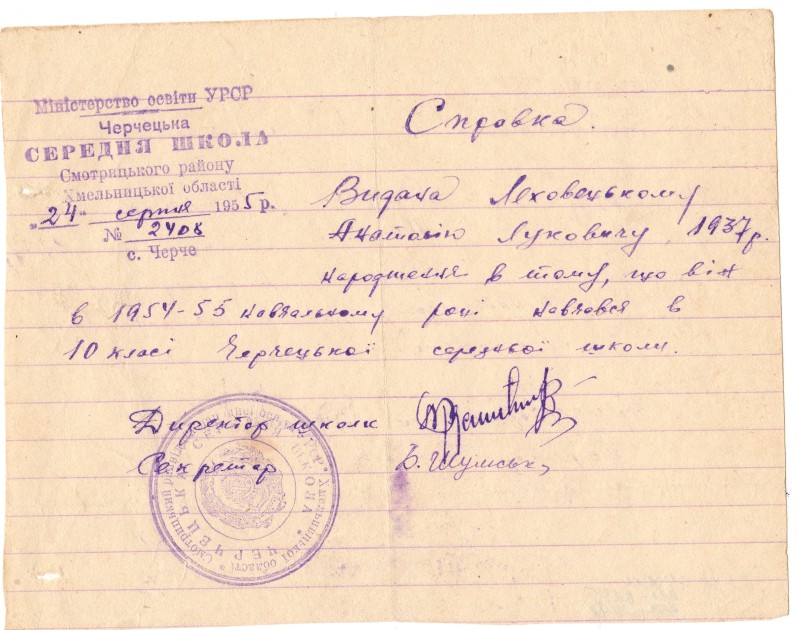 Міністерство освіти УРСР
Черчецька
СЕРЕДНЯ ШКОЛА
Смотрицького району
Хмельницької області
"24" серпня 1955 р.
№ 2408
с. Черче
Справка.
Видана Леховецькому
Анатолію Луковичу, 1937 р.
народження в тому, що він
в 1954-55 навчальному році навчався в
10 класі Черчецької середньої школи.
Директор школи
Секретар Шумськ
Смотрицький Хмельницької області
ЧЕРЧЕЦЬКА СЕРЕДНЯ ШКОЛА